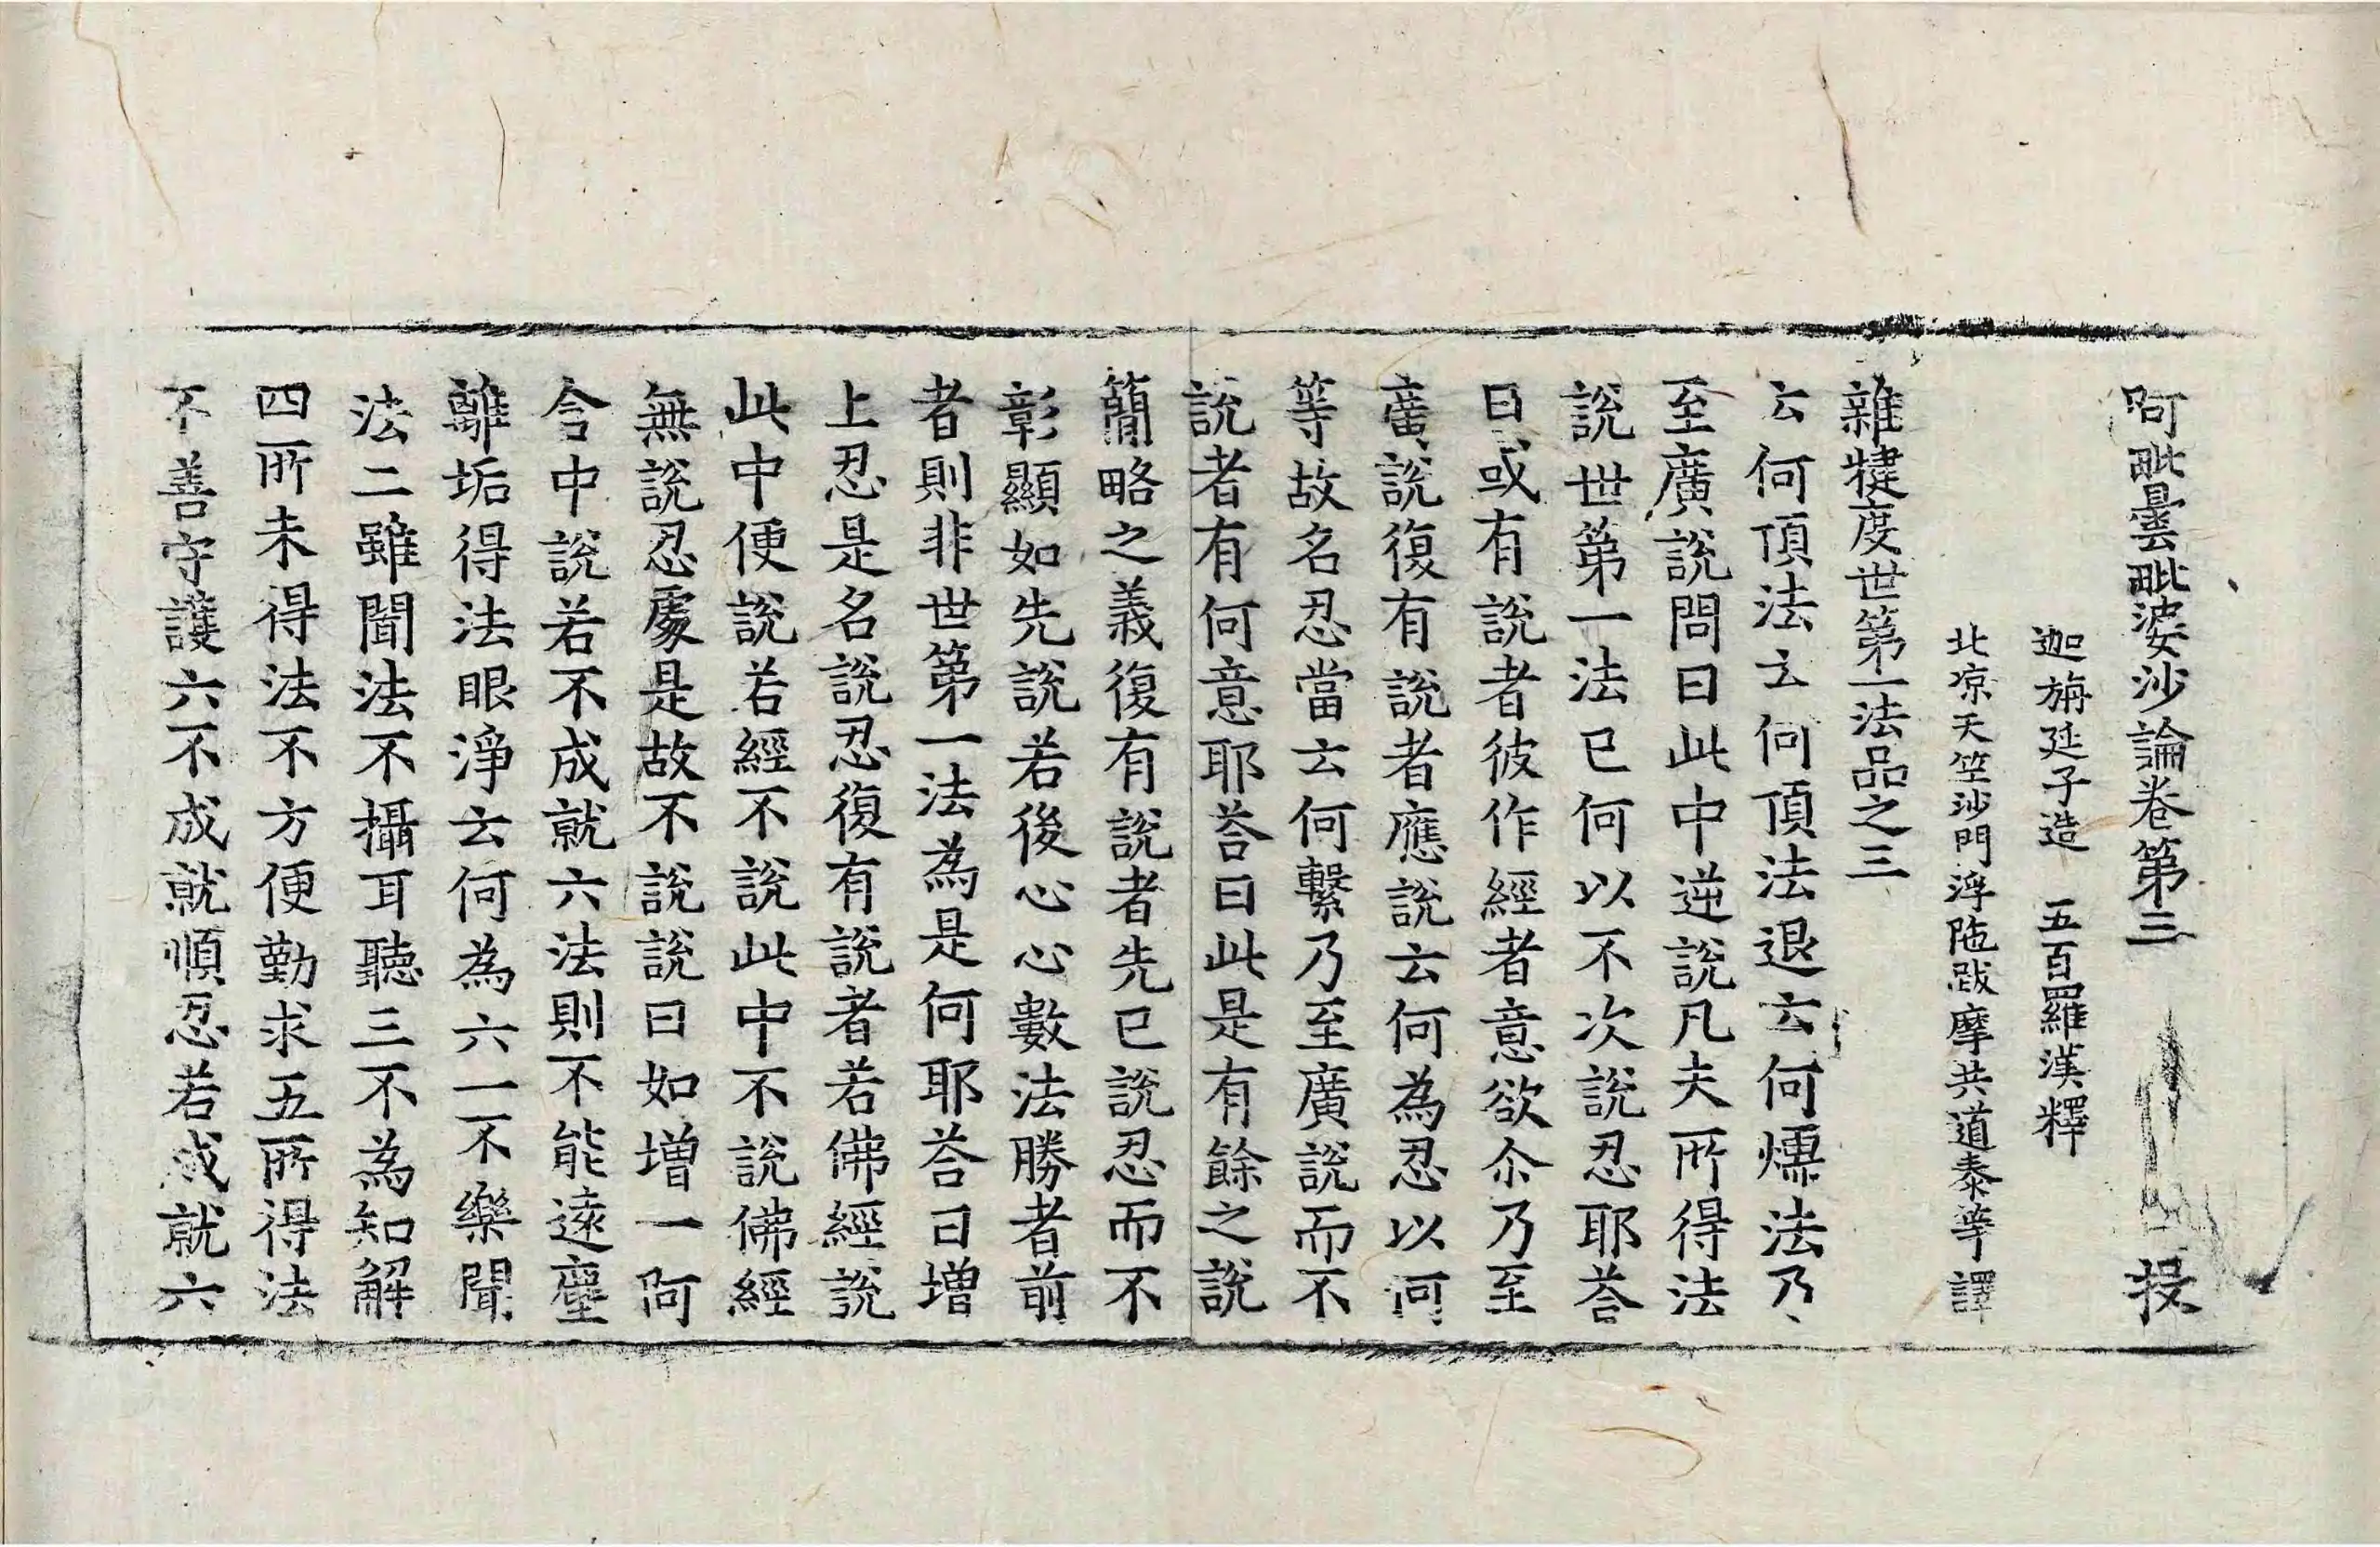 阿毗曇毗婆沙論卷第三 投
迦旃延子造 五百羅漢釋
北涼天竺沙門浮陁跋摩共道泰等譯
雜犍度世第一法品之三
云何頂法云何頂法退云何燸法乃
至廣說問曰此中逆說凡夫所得法
說世第一法已何以不次說忍耶荅
曰或有說者彼作經者意欲尒乃至
廣說復有說者應說云何為忍以何
等故名忍當云何繫乃至廣說而不
說者有何意耶荅曰此是有餘之說
簡略之義復有說者先已說忍而不
彰顯如先說若後心心數法勝者前
者則非世第一法為是何耶荅曰增
上忍是名說忍復有說者若佛經說
此中便說若經不說此中不說佛經
無說忍處是故不說說曰如增一阿
含中說若不成就六法則不能遠塵
離垢得法眼淨云何為六一不樂聞
法二雖聞法不攝耳聽三不為知解
四所未得法不方便勤求五所得法
不善守護六不成就順忍若成就六